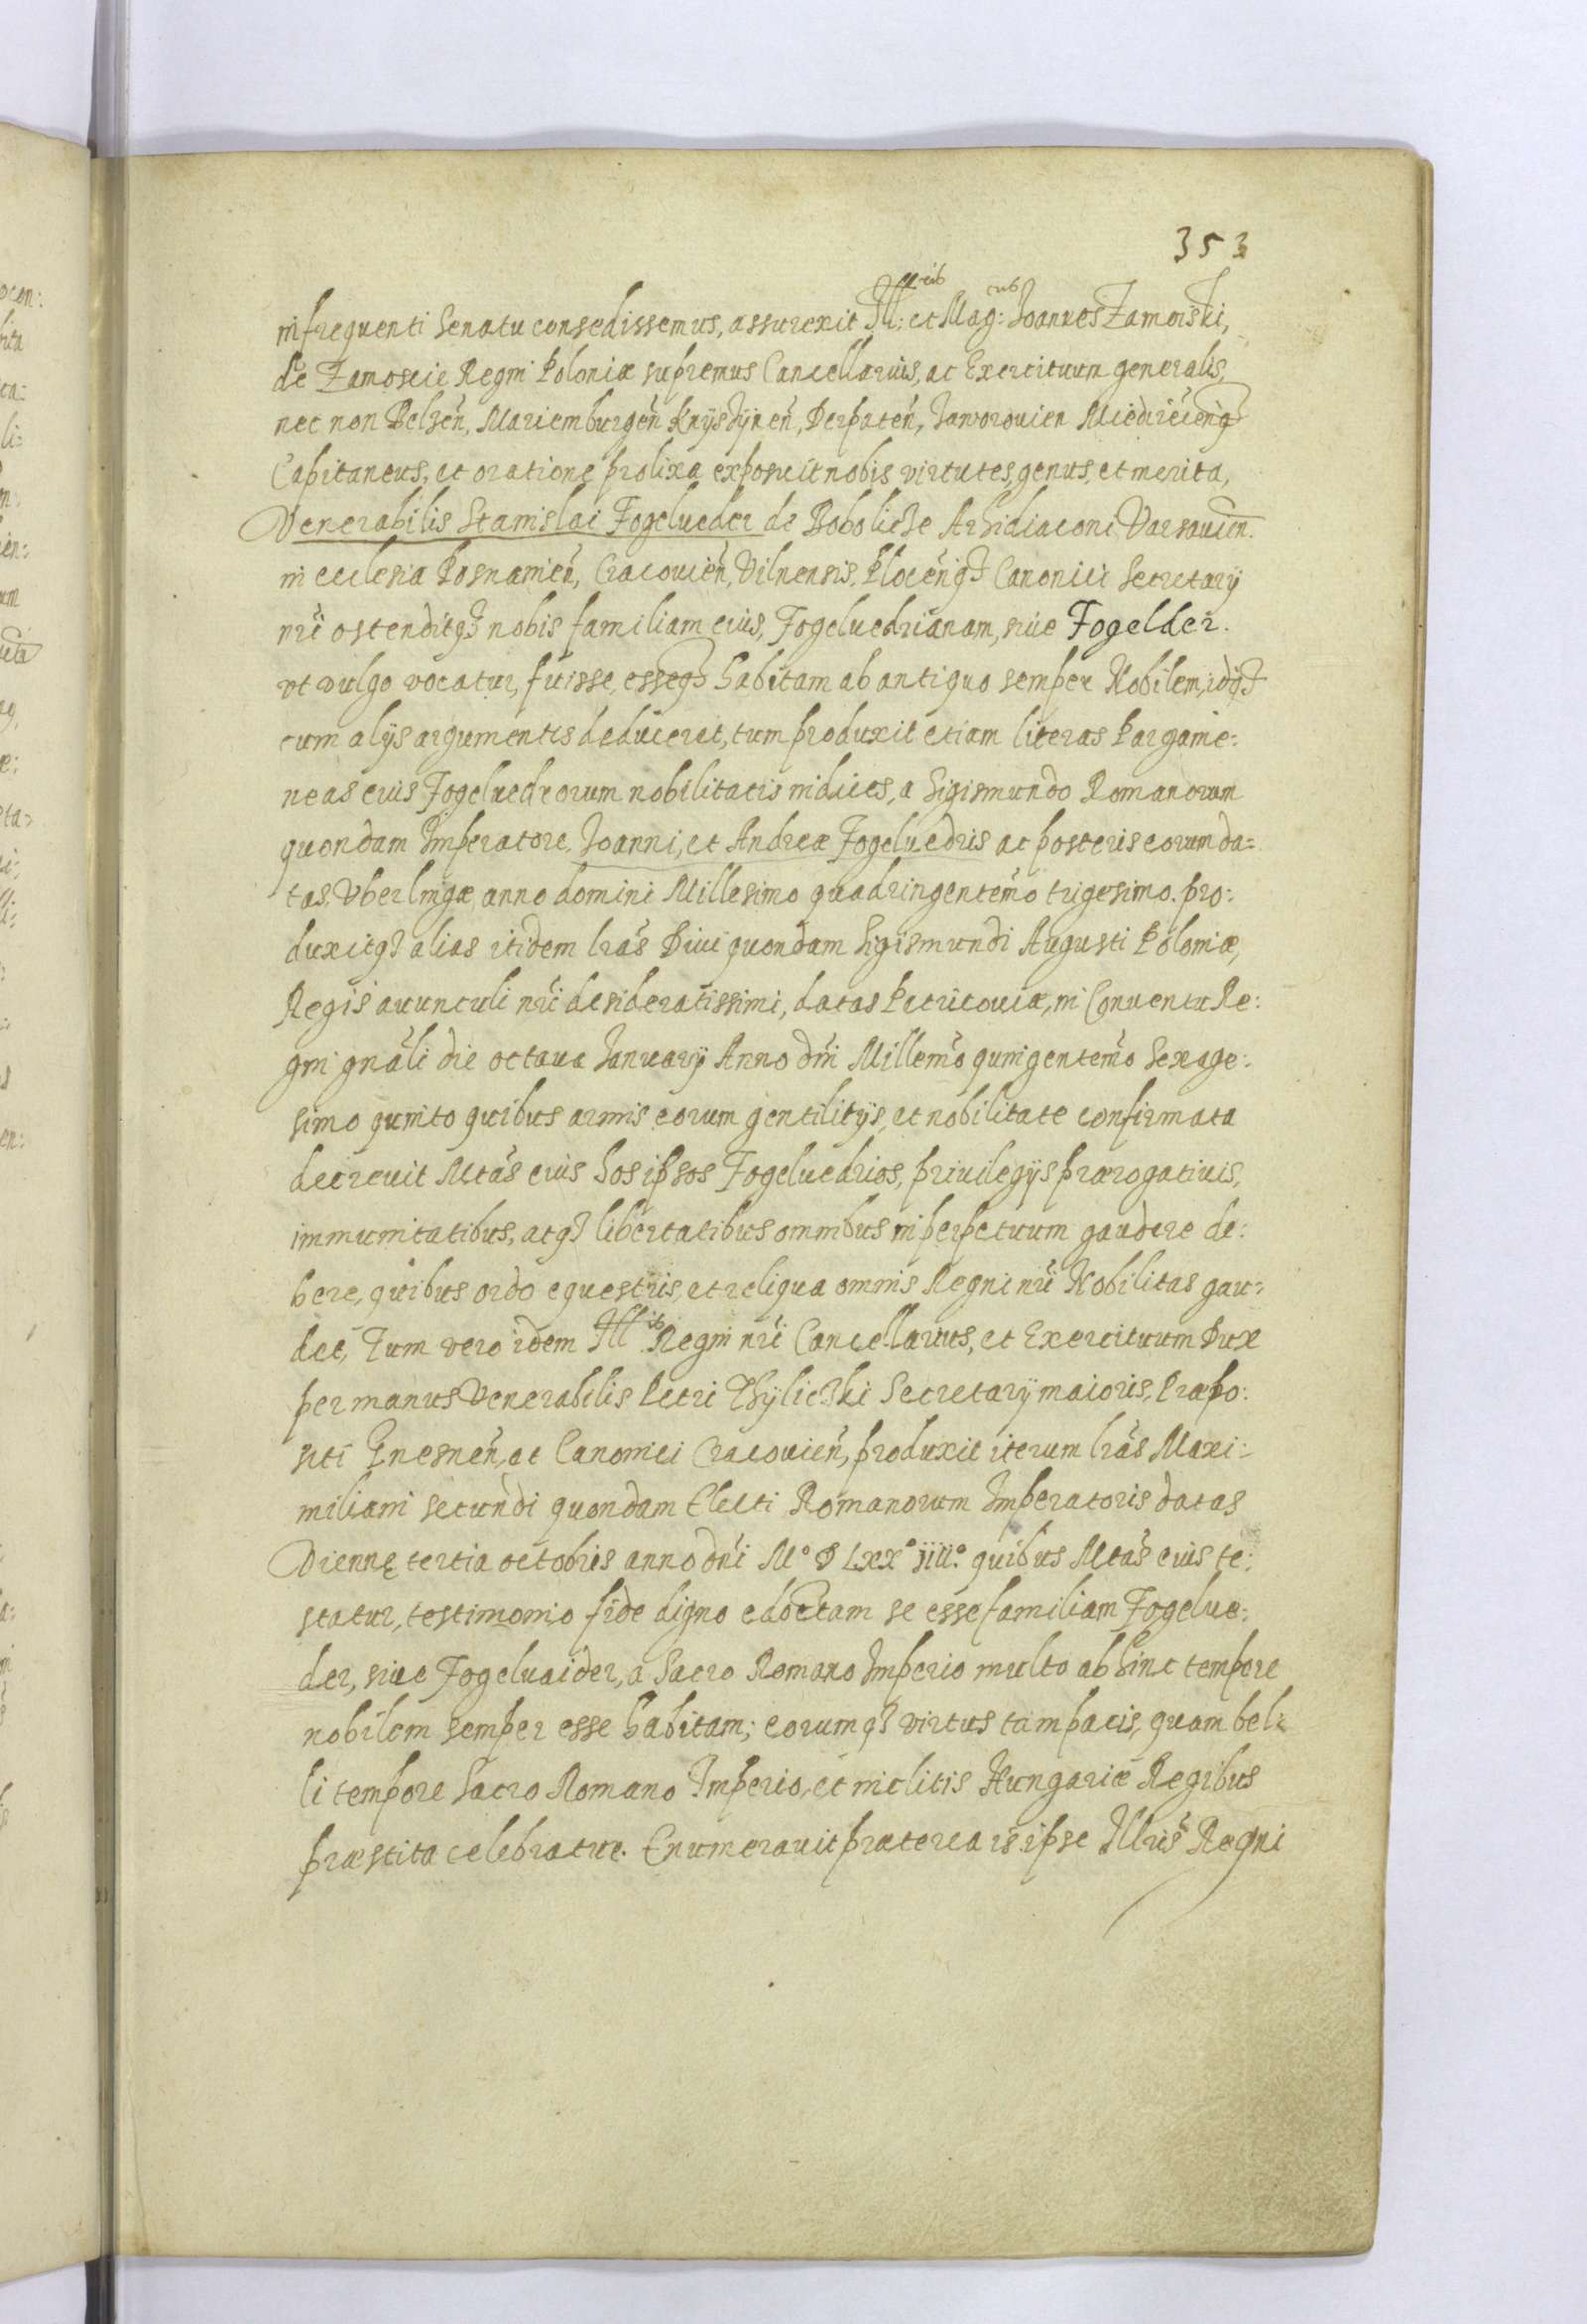 353
in frequenti Senatu consedissemus, assurexit Ill:ris et Mag:cus Joannes Zamoiski,
de Zamoscie Regni Poloniæ supremus Cancellarius, ac Exercituum generalis,
nec non Belzeñ, Mariemburgeñ Knÿsÿneñ, Derpateñ, Jaworouien Miedziceñq3
Capitaneus, et oratione prolixa exposuit nobis virtutes, genus, et merita,
Venerabilis Stanislai Fogelueder de Boboliche Arhidiaconi Varsauien.
in ecclesia Posnanieñ, Cracouieñ, Vilnensis, Ploceñq3 Canonici Secretarÿ
nri ostenditq3 nobis familiam eius, Fogeluedrianam, siue Fogelder.
vt vulgo vocatur, fuisse, esseq3 habitam ab antiquo semper Nobilem, idq3
cum alÿs argumentis deduceret, tum produxit etiam literas Pargame:
neas eius Fogeluedrorum nobilitatis indices, a Sigismundo Romanorum
quondam Imperatore Joanni, et Andreæ Fogeluedris ac posteris eorum da=
tas Vberlingæ anno domini Millesimo quadringentemo trigesimo. pro:
duxitq3 alias itidem lras Diui quondam Sigismundi Augusti Poloniæ,
Regis auunculi nri desideratissimi, datas Petricouiæ, in Conuentu Re:
gni gnali die octaua Januarÿ Anno dni Millemo quingentemo Sexage:
simo quinto quibus armis eorum gentilitÿs, et nobilitate confirmata
decreuit Mtas eius hos ipsos Fogeluedrios, priuilegÿs prærogatiuis,
immunitatibus, atq3 libertatibus omnibus in perpetuum gaudere de:
bere, quibus ordo equestris, et reliqua omnis Regni nri Nobilitas gau:
det, Tum vero idem Ill:is Regni nri Cancellarius, et Exercituum Dux
per manus Venerabilis Petri Thÿlichi Secretarÿ maioris, Præpo:
siti Gnesneñ, ac Canonici Cracouieñ, produxit iterum lras Maxi:
miliani secundi quondam Electi Romanorum Imperatoris datas
Viennę tertia octobris anno dni M° D LXX° iiii°. quibus Mtas eius te:
statur, testimonio fide digno edoctam se esse familiam Fogelue:
der, siue Fogeluaider, a Sacro Romano Imperio multo ab hinc tempore
nobilem semper esse habitam; eorumq3 virtus tam pacis, quam bel:
li tempore Sacro Romano Imperio, et inclitis Hungariæ Regibus
præstita celebratur. Enumerauit præterea is ipse Illris Regni